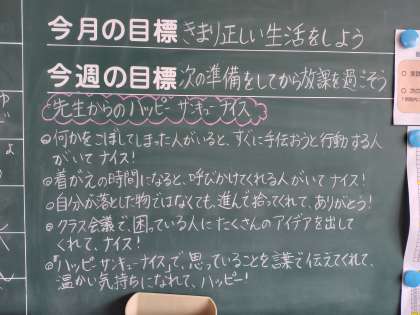 今月の目標 きまり正しい生活をしよう
今週の目標 次の準備をしてから放課を過ごそう
先生からのハッピーサンキューナイス
◎何かをこぼしてしまった人がいると、すぐに手伝おうと行動する人
がいてナイス!
◎着がえの時間になると、呼びかけてくれる人がいてナイス!
◎自分が落とした物ではなくても、進んで拾ってくれて、ありがとう!
◎クラス会議で、困っている人にたくさんのアイデアを出して
くれて、ナイス!
◎「ハッピーサンキューナイス」で、思っていることを言葉で伝えてくれて、
温かい気持ちになれて、ハッピー!